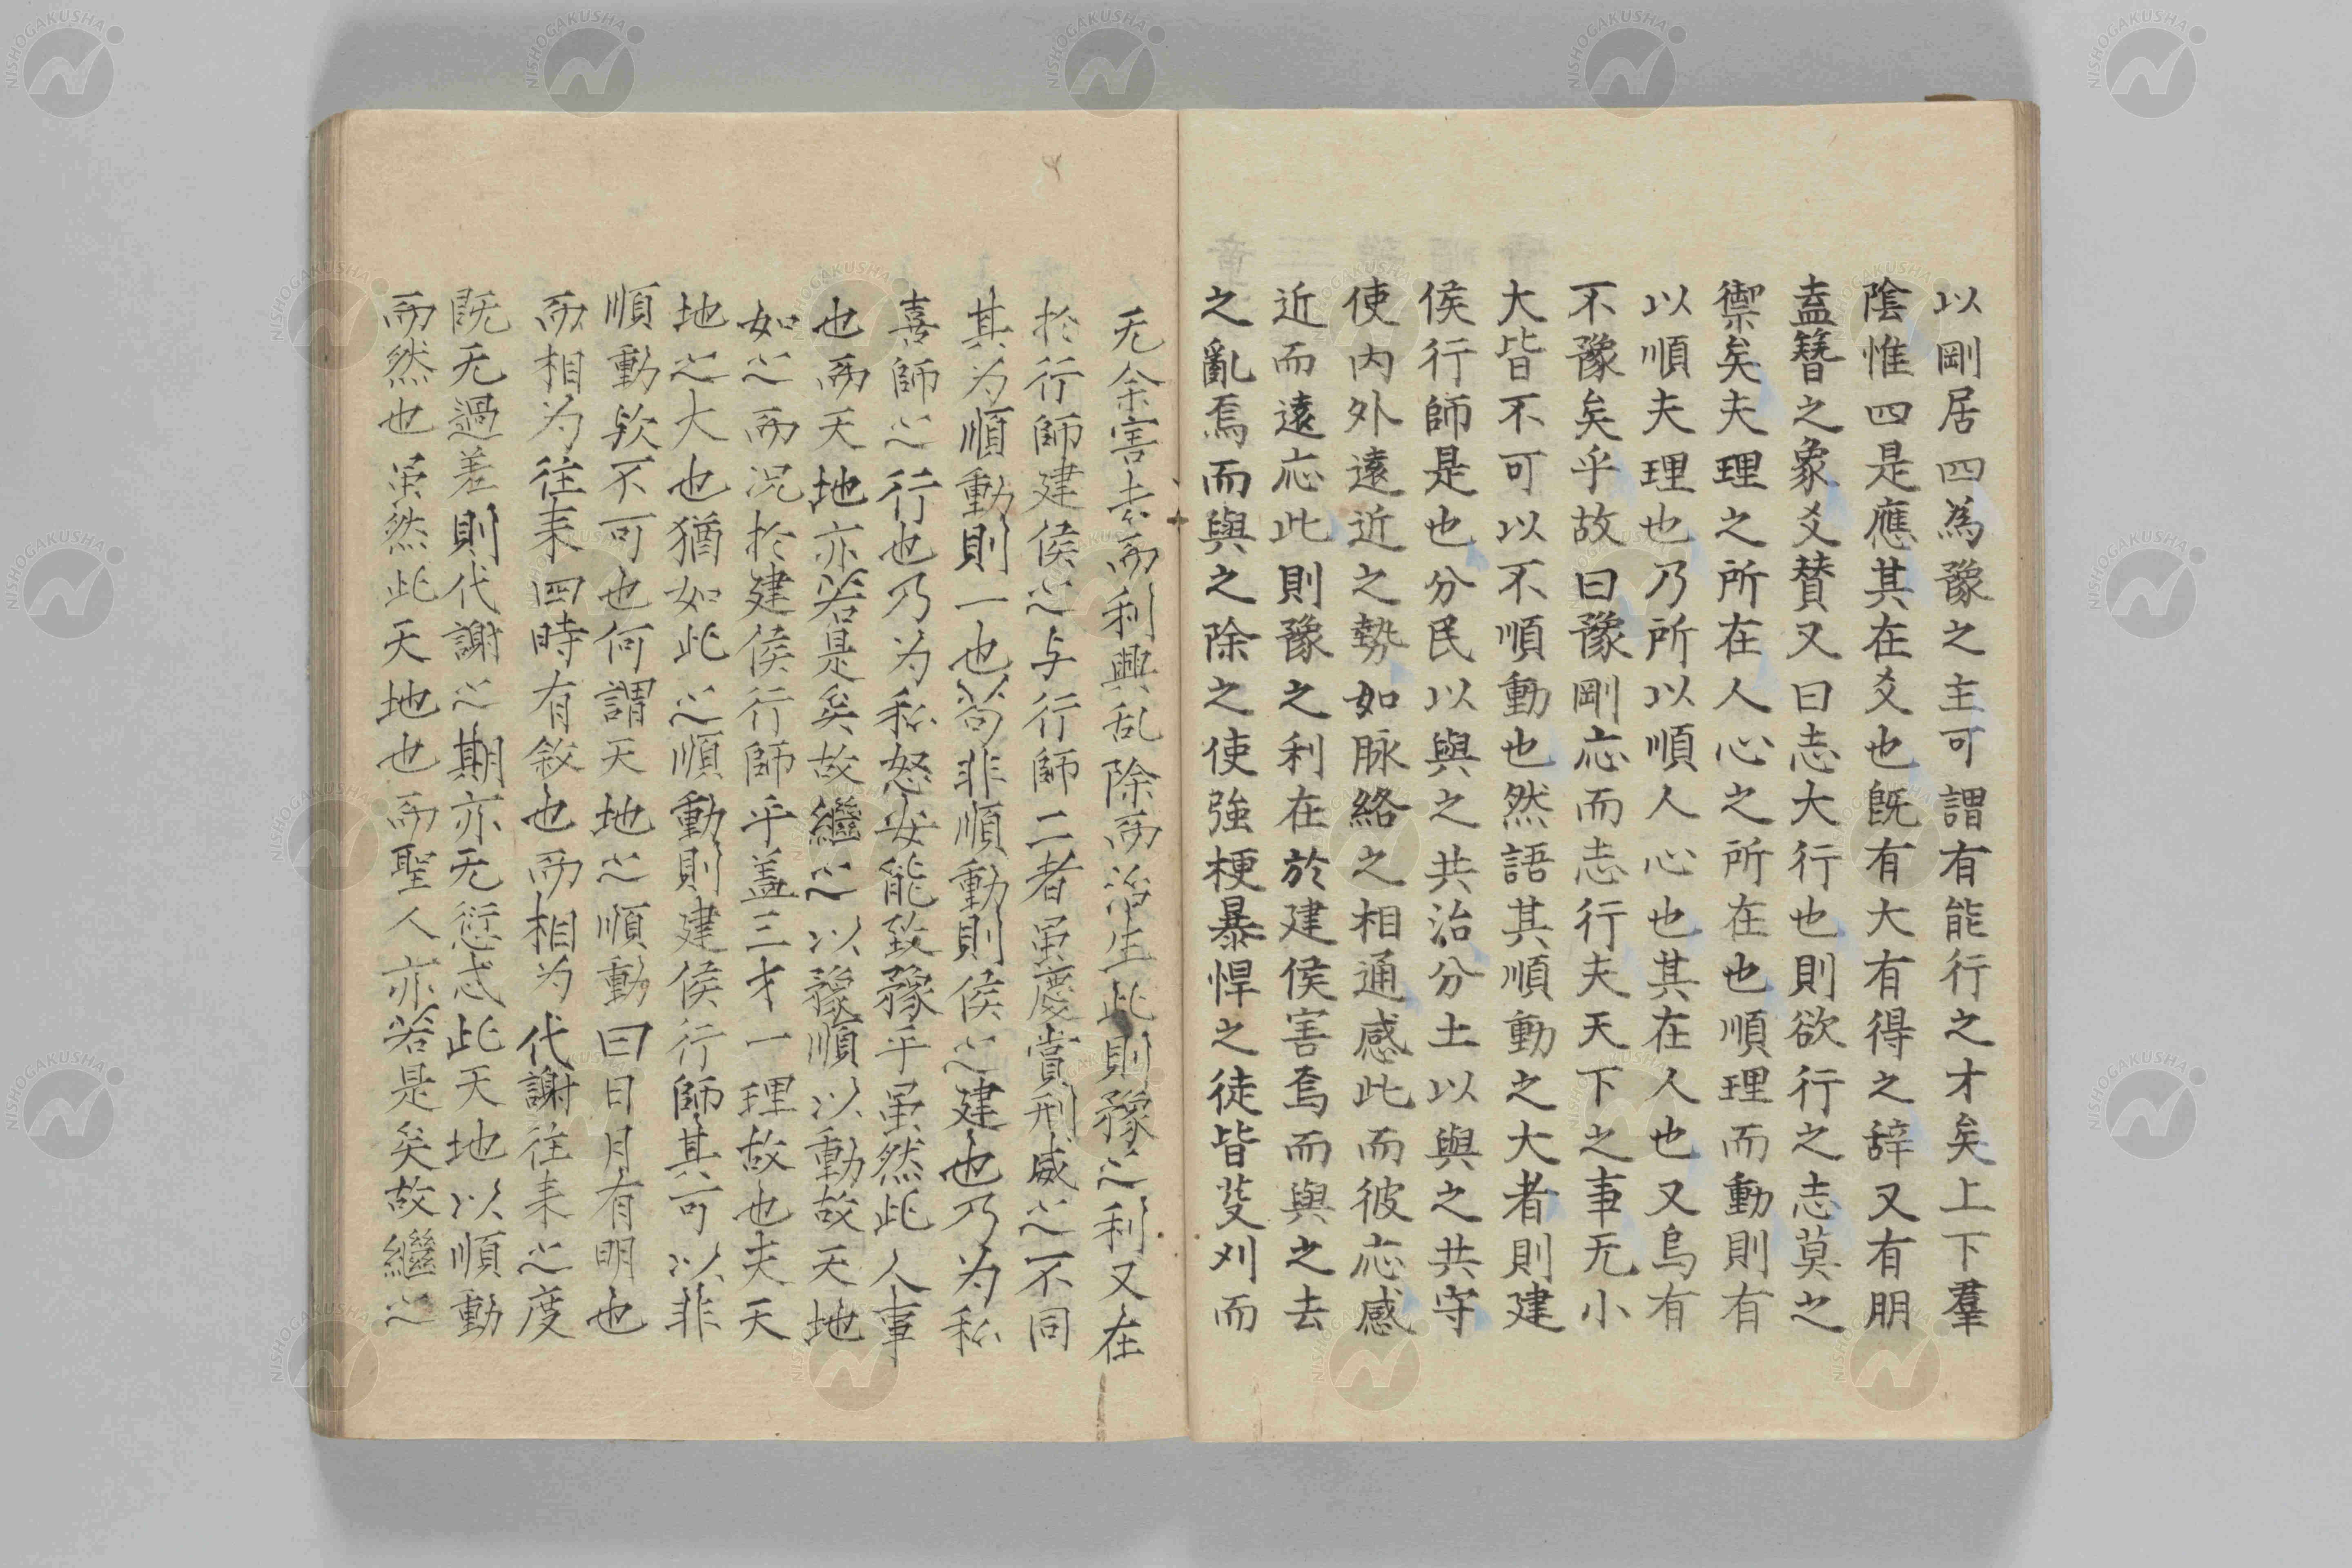 以剛居四為豫之主可謂有能行之才矣上下羣
陰惟四是應其在爻也旣有大有得之辞又有朋
盍簪之象爻賛又曰志大行也則欲行之志莫之
禦矣夫理之所在人心之所在也順理而動則有
以順夫理也乃所以順人心也其在人也又烏有
不豫矣乎故曰豫剛応而志行夫天下之事无小
大皆不可以不順動也然語其順動之大者則建
侯行師是也分民以與之共治分土以與之共守
使内外遠近之勢如脉絡之相通感此而彼応感
近而遠応此則豫之利在於建侯害焉而與之去
之亂焉而與之除之使強梗暴悍之徒皆芟刈而
无余害去而利興乱除而治生此則豫之利又在
於行師建侯之与行師二者虽慶賞刑威之不同
其为順動則一也苟非順動則侯之建也乃为私
喜師之行也乃为私怒安能致豫乎虽然此人事
也而天地亦若是矣故繼之以豫順以動故天地
如之而况於建侯行師乎盖三才一理故也夫天
地之大也猶如此之順動則建侯行師其可以非
順動欤不可也何謂天地之順動曰日月有明也
而相为往来四時有敘也而相为代謝往来之度
既无過差則代謝之期亦无愆忒此天地以順動
而然也虽然此天地也而聖人亦若是矣故繼之
NISHOGAKUSHA